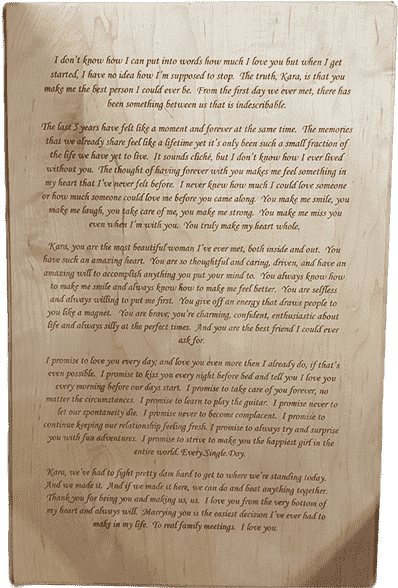 I don't know how I can put into words how much I love you but when I get
started, I have no idea how I'm supposed to stop. The truth, Kara, is that you
make me the best person I could ever be. From the first day we ever met, there has
been something between us that is indescribable.
The last 5 years have felt like a moment and forever at the same time. The memories
that we already share feel like a lifetime yet it's only been such a small fraction of
the life we have yet to live. It sounds cliché, but I don't know how I ever lived
without you. The thought of having forever with you makes me feel something in
my heart that I've never felt before. I never knew how much I could love someone
or how much someone could love me before you came along. You make me smile, you
make me laugh, you take care of me, you make me strong. You make me miss you
even when I'm with you. You truly make my heart whole.
Kara, you are the most beautiful woman I've ever met, both inside and out. You
have such an amazing heart. You are so thoughtful and caring, driven, and have an
amazing will to accomplish anything you put your mind to. You always know how
to make me smile and always know how to make me feel better. You are selfless
and always willing to put me first. You give off an energy that draws people to
you like a magnet. You are brave; you're charming, confident, enthusiastic about
life and always silly at the perfect times. And you are the best friend I could ever
ask for.
I promise to love you every day; and love you even more then I already do, if that's
even possible. I promise to kiss you every night before bed and tell you I love you
every morning before our days start. I promise to take care of you forever, no
matter the circumstances. I promise to learn to play the guitar. I promise never to
let our spontaneity die. I promise never to become complacent. I promise to
continue keeping our relationship feeling fresh. I promise to always try and surprise
you with fun adventures. I promise to strive to make you the happiest girl in the
entire world. Every.Single.Day.
Kara, we've had to fight pretty dam hard to get to where we're standing today.
And we made it. And if we made it here, we can do and beat anything together.
Thank you for being you and making us, us. I love you from the very bottom of
my heart and always will. Marrying you is the easiest decision I've ever had to
make in my life. To real family meetings. I love you.